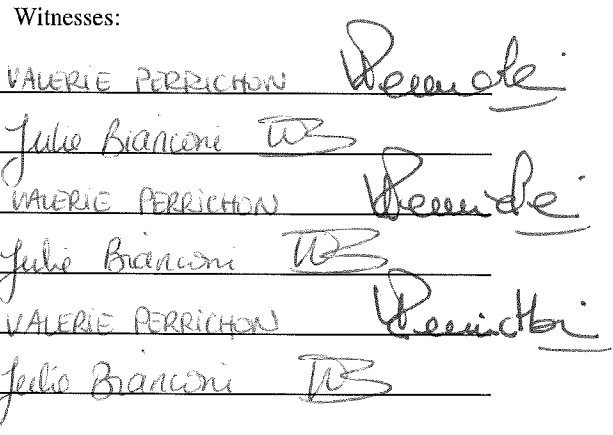 Witnesses:
VALERIE PERRICHON
Julie Bianconi
VALERIE PERRICHON
Julie Bianconi
VALERIE PERRICHON
Julie Bianconi